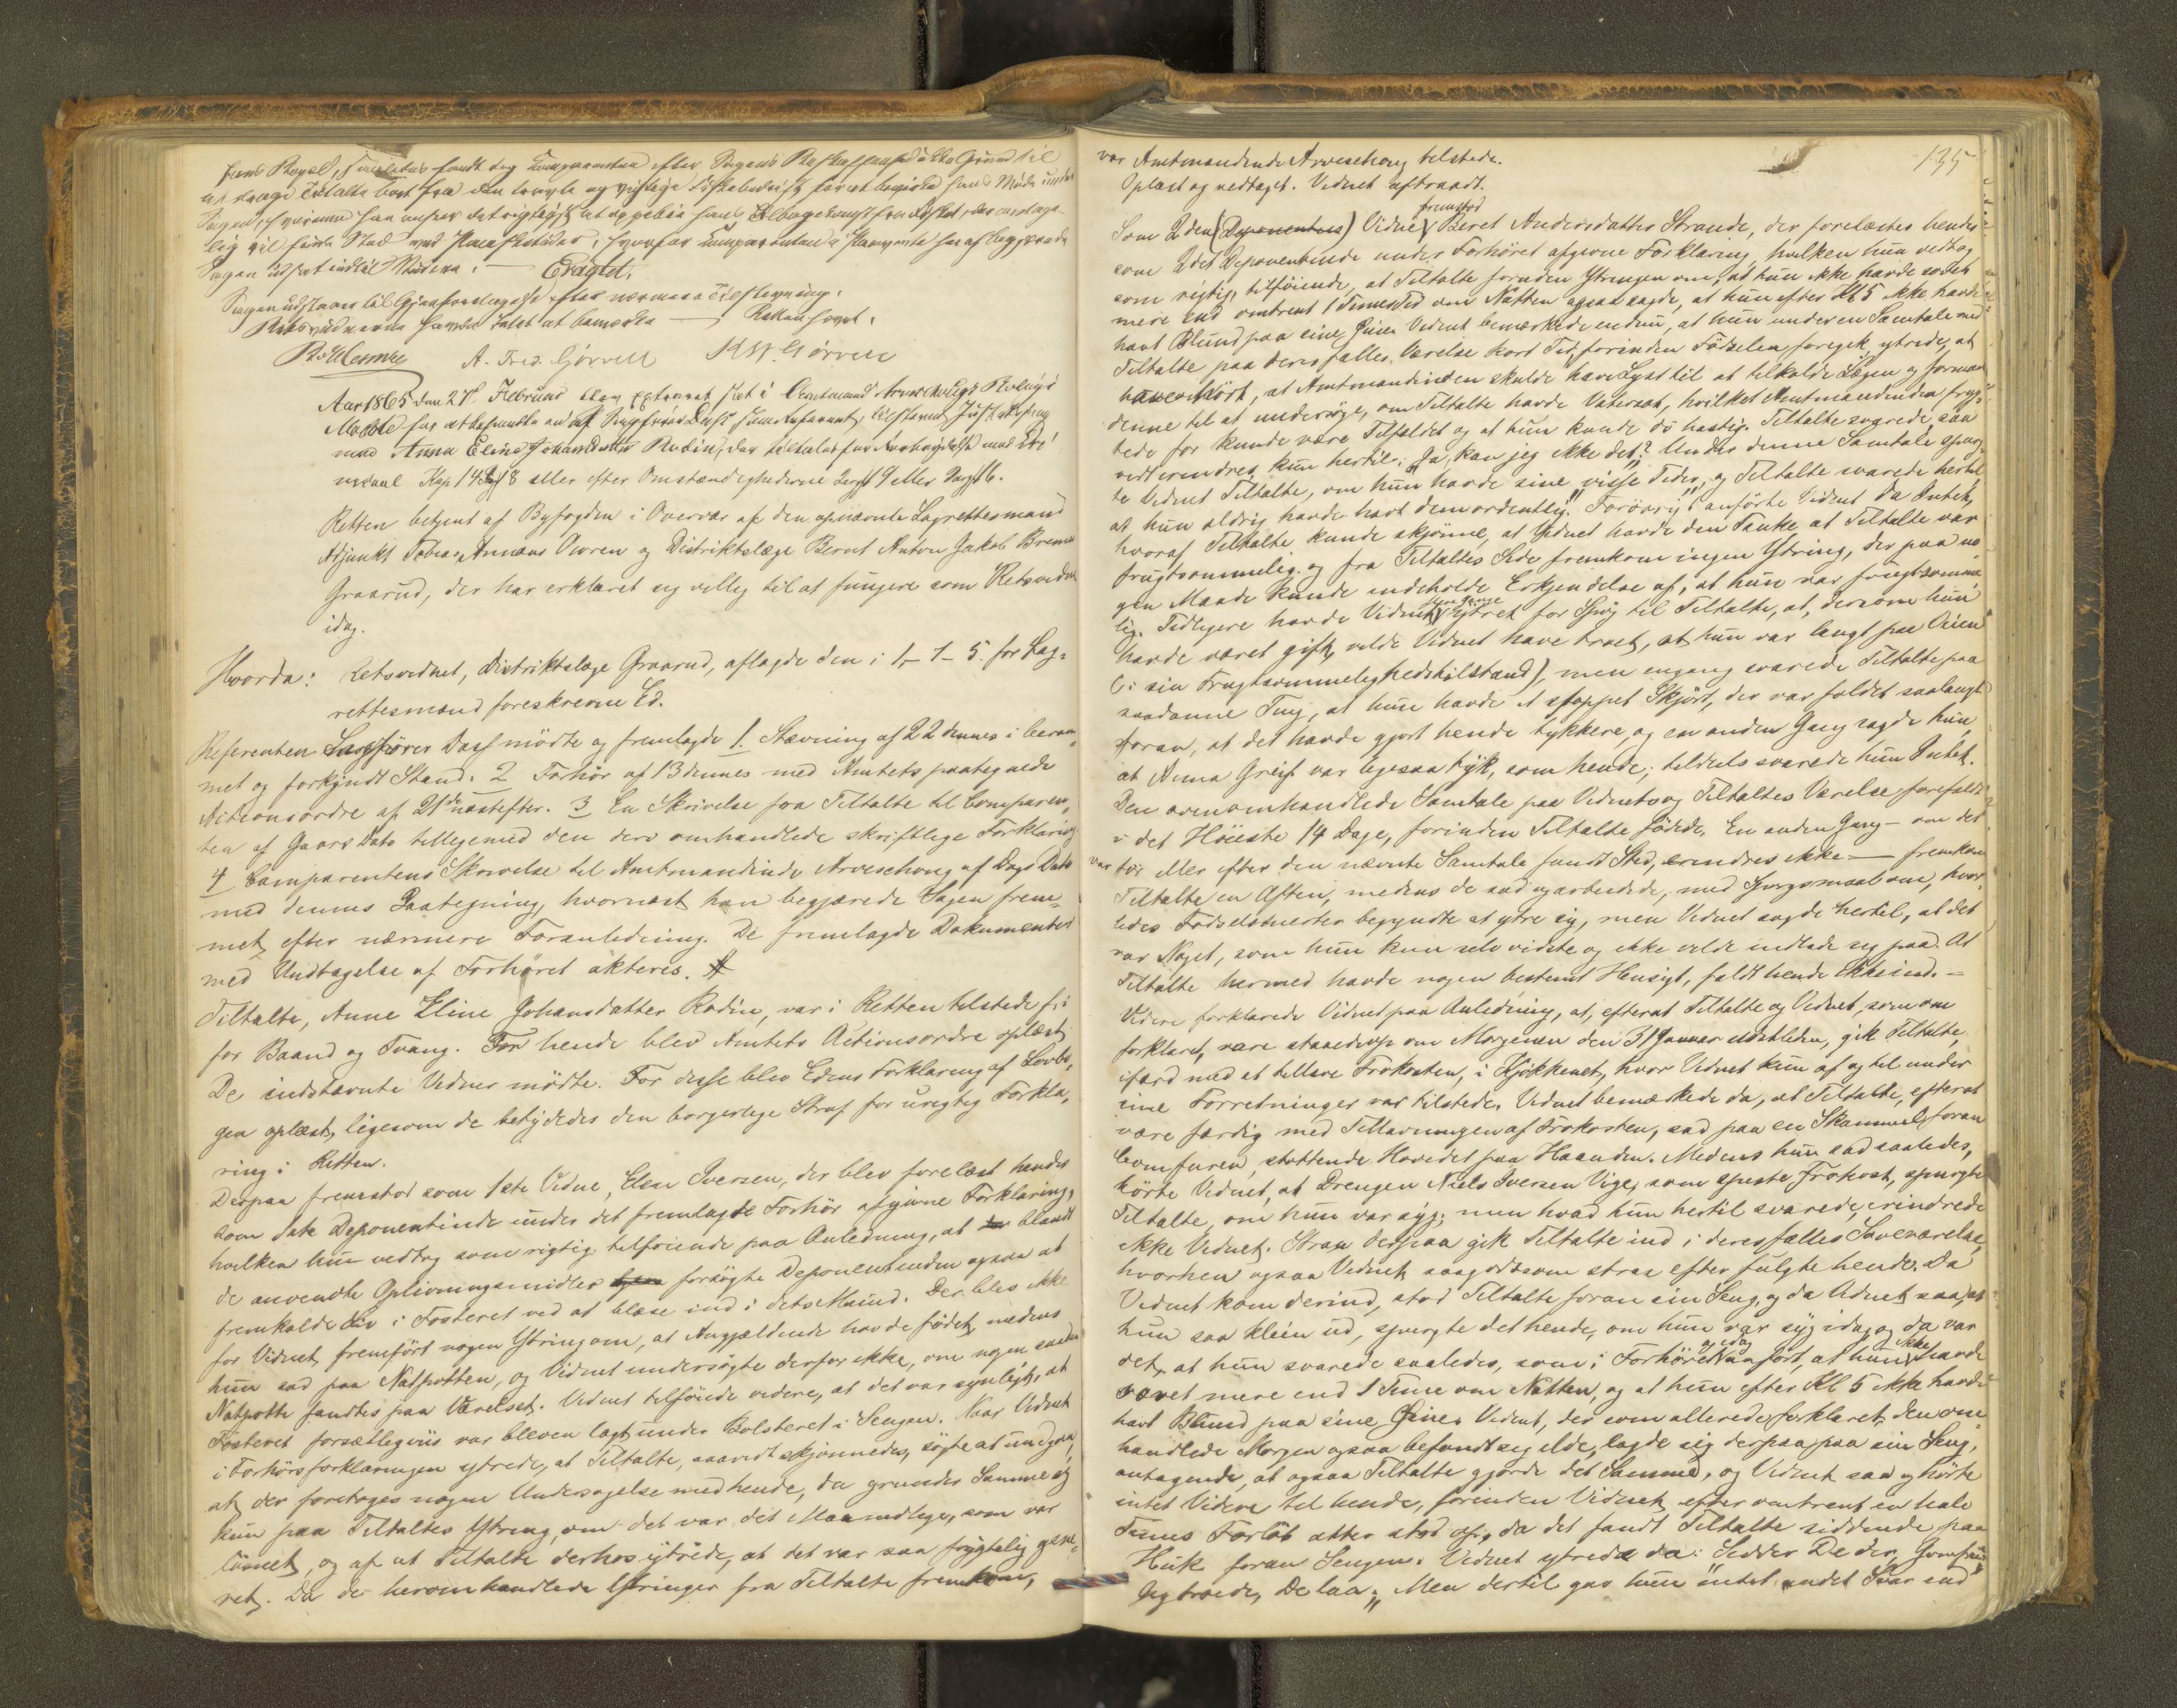 at drage Tiltalte bort fra den
Sagen udsat indtil videre. — Eragtet:
Sagen udstaaer til Gjenforetagelse efter nærmere Tilsigelse.
Retsvidnerne havde Intet at bemærke — Retten hævet.
A. Fred. Gørvell
Aar 1865 den 27de Februar blev extraret sat i Amtmand Arveschougs Bolig i
Molde for at behandle en af som Referent, Justitssag
mod Anna Eline Johansdatter Rødin, der tiltales for
Kap 14 § 18 eller efter Omstændighederne
Retten betjent af Byfogden i Overvær af den opnævnte Lagrettesmand
Adjunkt Tobias Annæus Owren og Distriktslæge Bernt Anton Jakob Brems
Graarud, der har erklæret sig villig til at fungere som Retsvidne
idag.
Hvorda: Retsvidnet, Distriktslæge Graarud, aflagde den i 1-7-5 for Lag-
rettesmænd foreskrevne Ed.
Referenten Sagfører Dass mødte og fremlagde 1. Stævning af 22 dennes i beram-
met og forkyndt Stand. 2 Forhør af 13 dennes med Amtets paategnede
Actionsordre af 21de næstefter. 3 En Skrivelse fra Tiltalte til Comparen-
ten af Gaars Dato tilligemed den deri omhandlede skriftlige Forklaring
4 Comparentens Skrivelse til Amtmandinde Arveschoug af Dags Dato
med dennes Paategning, hvornæst han begjærede Sagen frem-
met efter nærmere Foranledning. De fremlagde Dokumenter
med Undtagelse af Forhøret akteres.
Tiltalte, Anne Eline Johansdatter Rødin, var i Retten tilstede fri
for Baand og Tvang. For hende blev Amtets Actionsordre oplæst.
De indstævnte Vidner mødte. For disse blev Edens Forklaring af Lovbo-
gen oplæst, ligesom de betydedes den borgerlige Straf for urigtig Forkla-
ring i Retten.
Derpaa fremstod som 1ste Vidne, Elen Iversen, der blev forelæst hendes
som 1ste Deponentinde under det fremlagte Forhør afgivne Forklaring,
hvilken hun vedtog som rigtig tilføiende paa Anledning, at blandt
de anvendte Oplivningsmidler forsøgte Deponentinden ogsaa at
fremkalde Liv i Fosteret ved at blæse ind i dets Mund. Der blev ikke
for Vidnet fremført nogen Yttring om, at Angjældende havde fødet, medens
hun sad paa Natpotten, og Vidnet undersøgte derfor ikke, om nogen saadan
Natpotte fandtes paa Værelset. Vidnet tilføiede videre, at det var synligt, at
Fosteret forsætligviis var bleven lagt under Bolsteret i Sengen. Naar Vidnet
i Forhørsforklaringen ytrede, at Tiltalte, saavidt skjønnedes, søgte at undgaa,
at der foretoges nogen Undersøgelse med hende, da grunder Samme sig
kun paa Tiltaltes Ytring om det var det Maanedlige, som var
kommet, og af at Tiltalte derhos ytrede, at det var saa frygtelig gene-
ret. Da de heromhandlede Ytringer fra Tiltalte fremkom,
135
var Amtmandinde Arveschoug tilstede.
Oplæst og vedtaget. Vidnet aftraadt.
fremstod
Som 2den (Deponentens) Vidne Beret Andersdatter Strande, der forelæstes hendes
som 2det Deponentinde under Forhøret afgivne Forklaring, hvilken hun vedtog
som rigtig, tilføiende, at Tiltalte foruden Ytringen om, at hun ikke havde sovet
mere end omtrent 1 Times Tid om Natten ogsaa sagde, at hun efter Kl 5 ikke havde
havt Blund paa sine Øine. Vidnet bemærkede endnu, at hun under en Samtale med
Tiltalte paa deres fælles Værelse kort Tid, forinden Fødselen foregik, ytrede, at
hørt, at Amtmandinden skulde have Lyst til at tilkalde Lægen og formaa
denne til at undersøge, om Tiltalte havde Vatersot, hvilket Amtmandinden fryg-
tede for kunde være Tilfældet og at hun kunde dø hastig. Tiltalte svarede saa
vidt erindres, kun hertil: "Ja, kan jeg ikke det?" Under denne Samtale spurg-
te Vidnet Tiltalte, om hun havde sine "visse Tider", og Tiltalte svarede hertil
at hun aldrig havde havt dem ordentlig. Forøvrigt anførte Vidnet da Intet,
hvoraf Tiltalte kunde skjønne, at Vidnet havde den Tanke at Tiltalte var
frugtsommelig, og fra Tiltaltes Side fremkom ingen Ytring, der paa no-
gen Maade kunde indeholde Erkjendelse af, at hun var frugtsomme-
lig. Tidligere havde Vidnet ytret for Spøg til Tiltalte, at, dersom hun
havde været gift, vilde Vidnet have troet, at hun var langt paa Veien
(i sin Frugtsommelighedstilstand), men engang svarede Tiltalte paa
saadanne Ting, at hun havde et stoppet Skjørt, der var foldet saalangt
foran, at det havde gjort hende tykkere, og en anden Gang sagde hun,
at Anna Greif var ligesaa tyk, som hende; tildels svarede hun Intet.
Den ovenomhandlede Samtale paa Vidnets og Tiltaltes Værelse forefaldt
i det Høieste 14 Dage, forinden Tiltalte fødede. En anden Gang – om det
var før eller efter den nævnte Samtale fandt Sted, erindres ikke — fremkom
Tiltalte en Aften, medens de sad og arbeidede, med Spørgsmaal om, hvor-
ledes Fødselssmerter begyndte at ytre sig, men Vidnet sagde hertil, at det
var Noget, som hun kun selv vidste og ikke vilde indlade sig paa. At
Tiltalte hermed havde nogen bestemt Hensigt, faldt hende ikke ind. –
Videre forklarede Vidnet paa Anledning, at, efterat Tiltalte og Vidnet, som om
forklaret, vare staaede op om Morgenen den 31 Januar sidstleden, gik Tiltalte,
ifærd med at tillave Frokosten, i Kjøkkenet, hvor Vidnet kun af og til under
sine Forretninger var tilstede. Vidnet bemærkede da, at Tiltalte, efterat
være færdig med Tillavningen af Frokosten, sad paa en Skammel foran
Comfuren, støttende Hovedet paa Haanden. Medens hun sad saaledes,
hørte Vidnet, at Drengen Niels Iversen Vige, som spiste Frokost, spurgte
Tiltalte, om hun var syg; men hvad hun hertil svarede, erindrede
ikke Vidnet. Strax derpaa gik Tiltalte ind i deres fælles Soveværelse,
hvorhen ogsaa Vidnet saagodtsom strax efter fulgte hende. Da
Vidnet kom derind, stod Tiltalte foran sin Seng, og da Vidnet saa, at
hun saa klein ud, spurgte det hende, om hun var syg idag, og da var
og idag ikke
det, at hun svarede saaledes, som i Forhøret anført, at hun havde
sovet mere end 1 Time om Natten, og at hun efter Kl 5 ikke havde
havt Blund paa sine Øine. Vidnet, der som allerede forklaret den om-
handlede Morgen ogsaa befandt sig ilde, lagde sig derpaa paa sin Seng,
antagende, at ogsaa Tiltalte gjorde det Samme, og Vidnet saa og hørte
intet Videre til hende, forinden Vidnet efter omtrent en halv
Times Forløb atter stod op, da det fandt Tiltalte siddende paa
Huk foran Sengen. Vidnet ytrede da: "Sidder De der, Jomfru
Jeg troede, De laa." Men dertil gav hun intet andet Svar end